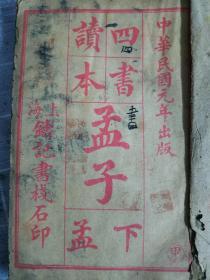 中華民國元年出版
四書
讀本
孟子
下
孟
上海鑄記書棧石印
甲